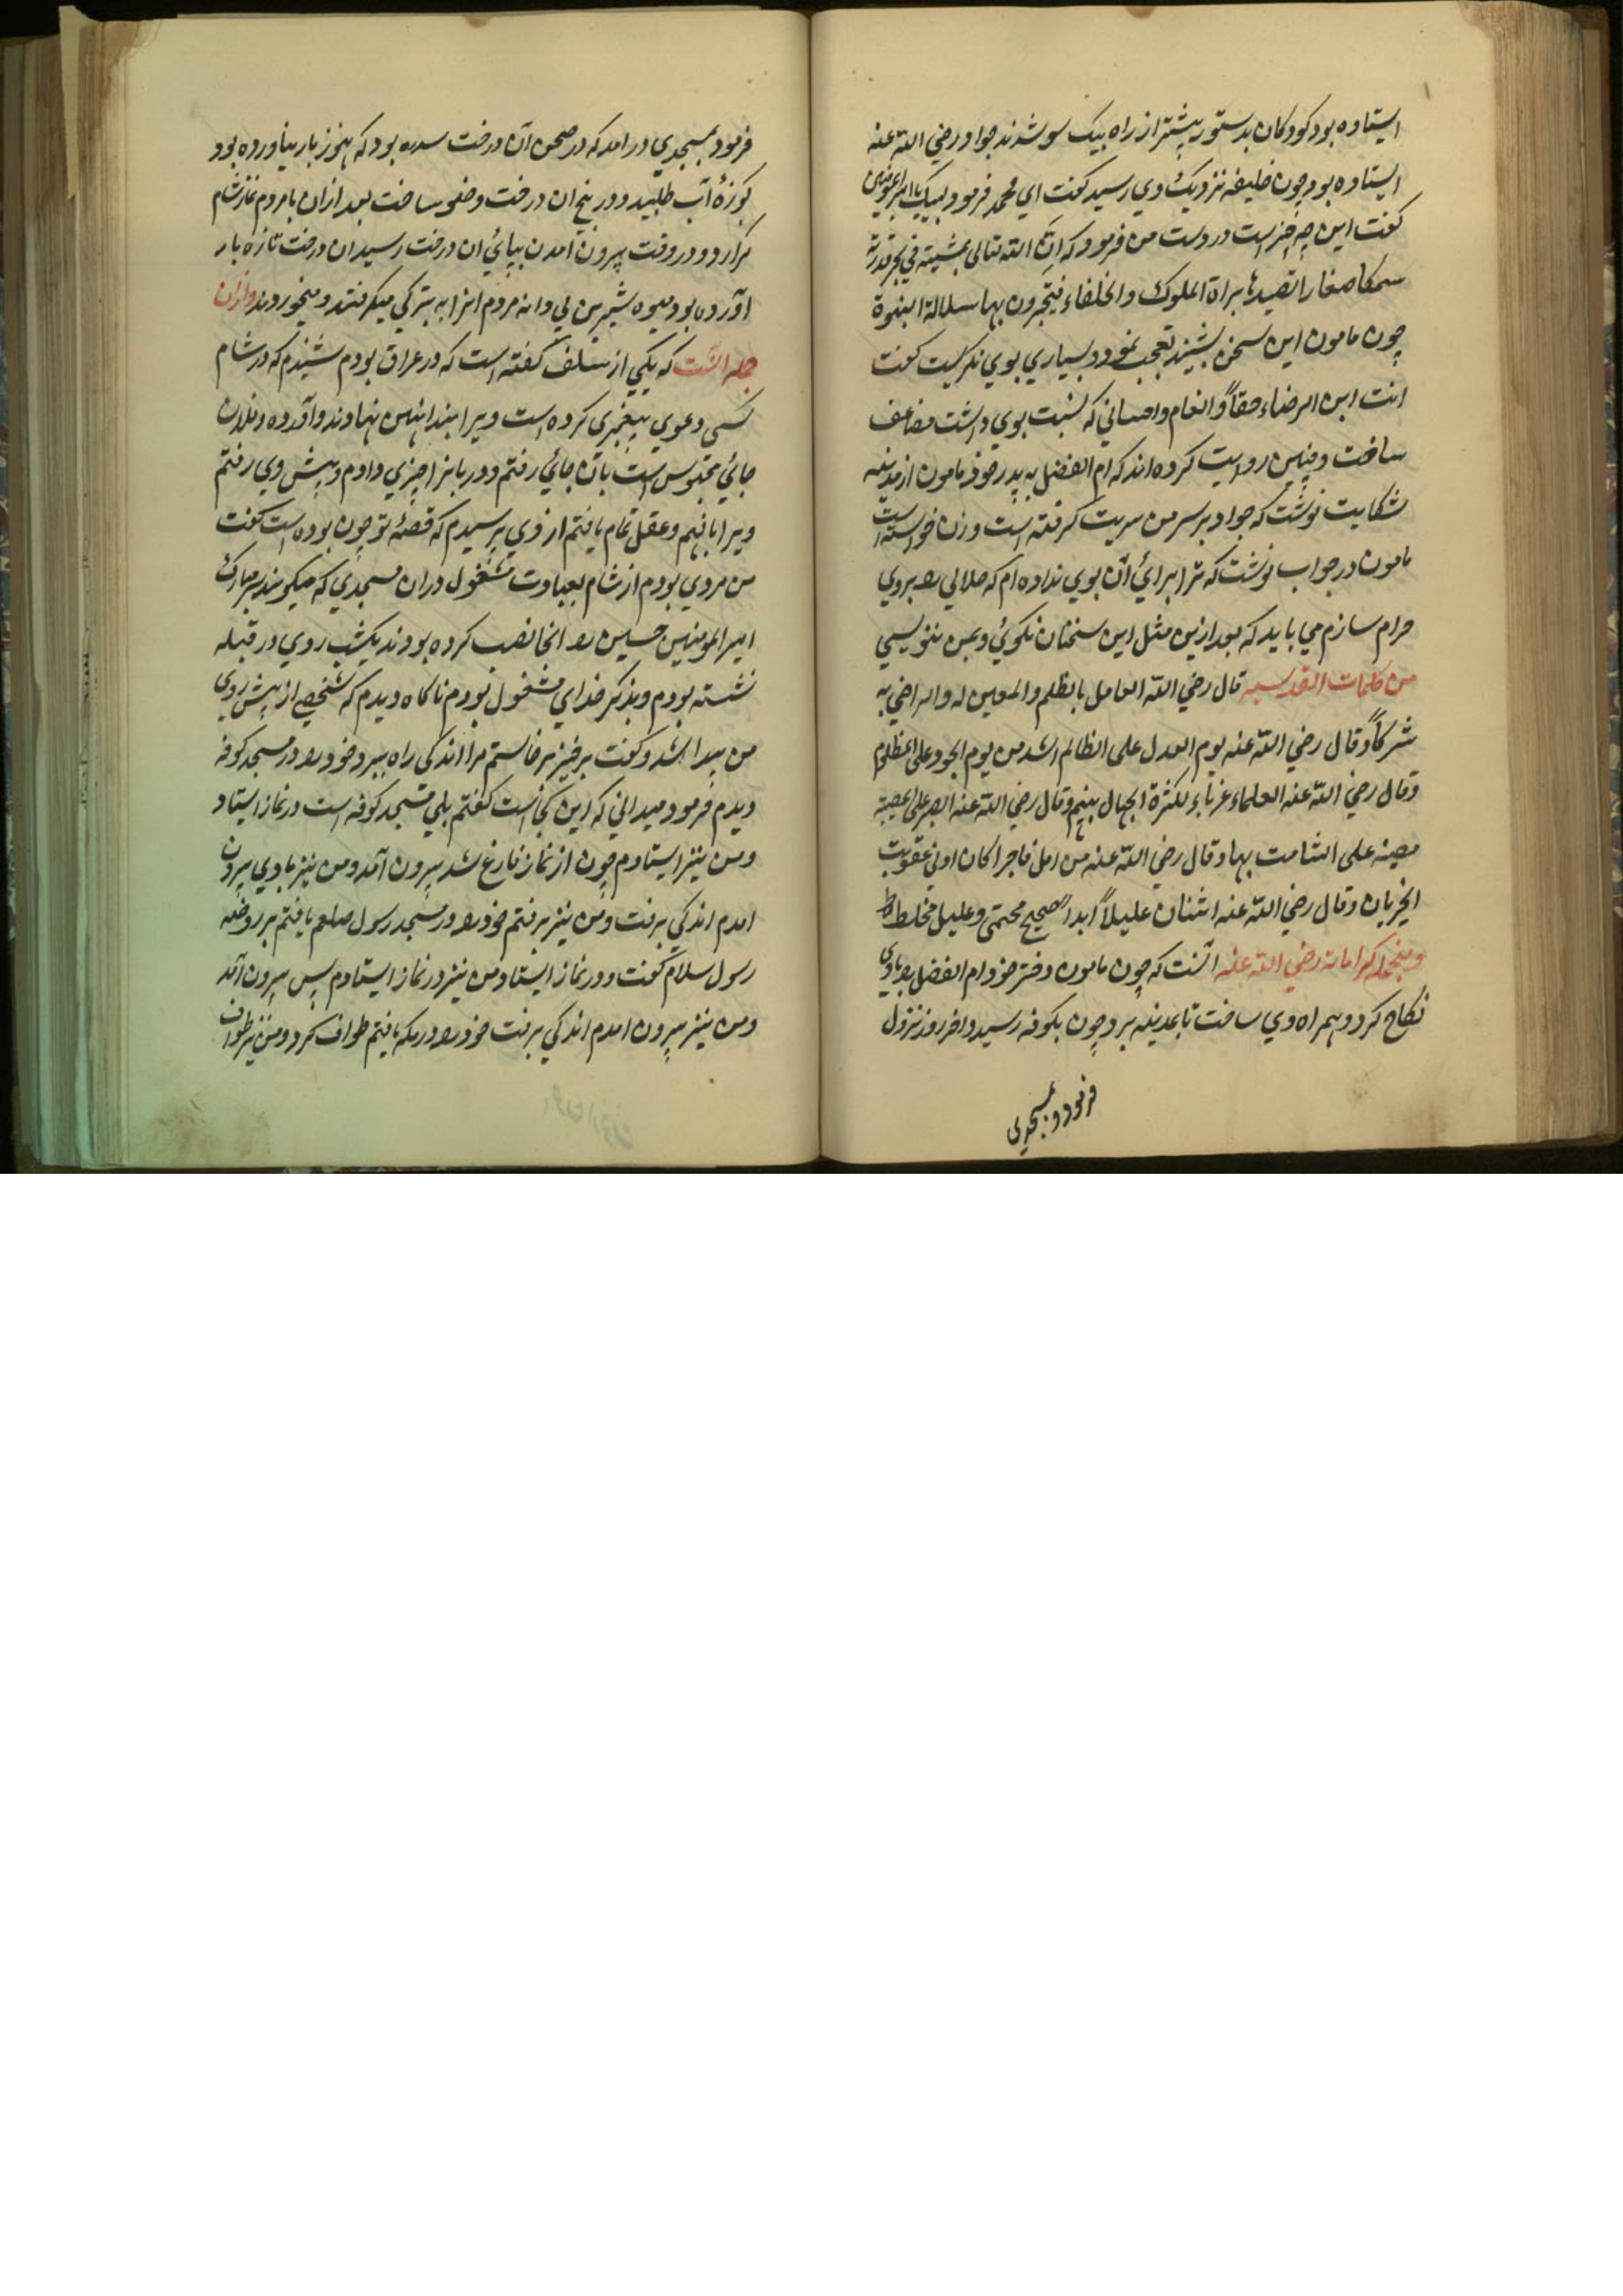 ایستاده بود کودکان بدستور پیشتر از راه بیک سو شدند جواد رضي الله عنه
ایستاده بود چون خلیفه نزدیک وي رسید کفت اي محمد فرمود لبیک یا امیر المومنین
کفت این چه چیز است در دست من فرمود که ان الله تعالی بمشیته في بحر قدرته
سمکا صغارا تصیدها بزاة الملوک والخلفاء فیختبرون بها سلالة النبوة
چون مامون این سخن بشنید تعجب نمود و بسیاري بوي نکریست کفت
انت ابن الرضاء حقاً و انعام و احسانی که نسبت بوي داشت مضاعف
ساخت و چنین روایت کرده اند که ام الفضل به پدر خود مامون از مدینه
شکایت نوشت که جواد بر سر من سریت کرفته است و زن خواسته است
مامون در جواب نوشت که ترا برائ آن بوي نداده ام که حلالي را بروي
حرام سازم مي باید که بعد ازین مثل این سخنان نکوئ و بمن ننویسي
من کلمات القدسیه قال رضي الله العامل بالظلم والمعین له والراضي به
شرکاً وقال رضي الله عنه یوم العدل علی الظالم اشد من یوم الجور علی المظلوم
وقال رضي الله عنه العلماء غرباء لکثرة الجهال بینهم وقال رضي الله عنه الصبر علی المصیبة
مصیبة علی الشامت بها وقال رضي الله عنه من امل فاجرا کان ادنی عقوبت
الحرمان وقال رضي الله عنه اثنان علیلاً ابدا صحیح محتمی وعلیل مخلط
و منجمله کرامات رضي الله عنه آنست که چون مامون دختر خود ام الفضل را با وي
نکاح کرد و همراه وي ساخت تا بمدینه برد چون بکوفه رسید و اخر روز نزول
فرمود و بمسجدی
فرمود بمسجدي در امد که در صحن آن درخت سدره بود که هنوز بار نیاورده بود
کوزهٔ آب طلبید و در بیخ ان درخت وضو ساخت بعد ازان با مردم نماز شام
کزارد و در وقت بیرون امدن بپائ ان درخت رسید ان درخت تازه بار
آورده بود میوه شیرین بي دانه مردم انرا به تبرکي میکرفتند و میخوردند و ازان
جمله انست که یکي از سلف کفته است که در عراق بودم شنیدم که در شام
کسی دعوي پیغمبری کرده است ویرا بند اهنین نهادند و آورده و فلان
جائ محبوس است بآن جائ رفتم و دربانرا چیزي دادم و پیش وي رفتم
ویرا با فهم و عقل تمام یافتم از وي پرسیدم که قصهٔ تو چون بوده است کفت
من مردي بودم از شام بعبادت مشغول دران مسجدي که میکویند سر مبارک
امیر المومنین حسین را انجا نصب کرده بودند یکشب روي در قبله
نشسته بودم و بذکر خداي مشغول بودم ناکاه دیدم که شخصی از پیش روي
من پیدا شد و کفت برخیز برخاستم مرا اندکی راه ببرد خود را در مسجد کوفه
دیدم فرمود میدانی که این کجاست کفتم بلي مسجد کوفه است در نماز ایستاد
ومن نیز ایستادم چون از نماز فارغ شد بیرون آمد ومن نیز با وي بیرون
امدم اندکي برفت ومن نیز برفتم خود را در مسجد رسول صلعم یافتم بر روضه
رسول سلام کفت و در نماز ایستاد ومن نیز در نماز ایستادم پس بیرون آمد
ومن نیز بیرون امدم اندکی برفت خود را در مکه یافتم طواف کرد ومن نیز طواف